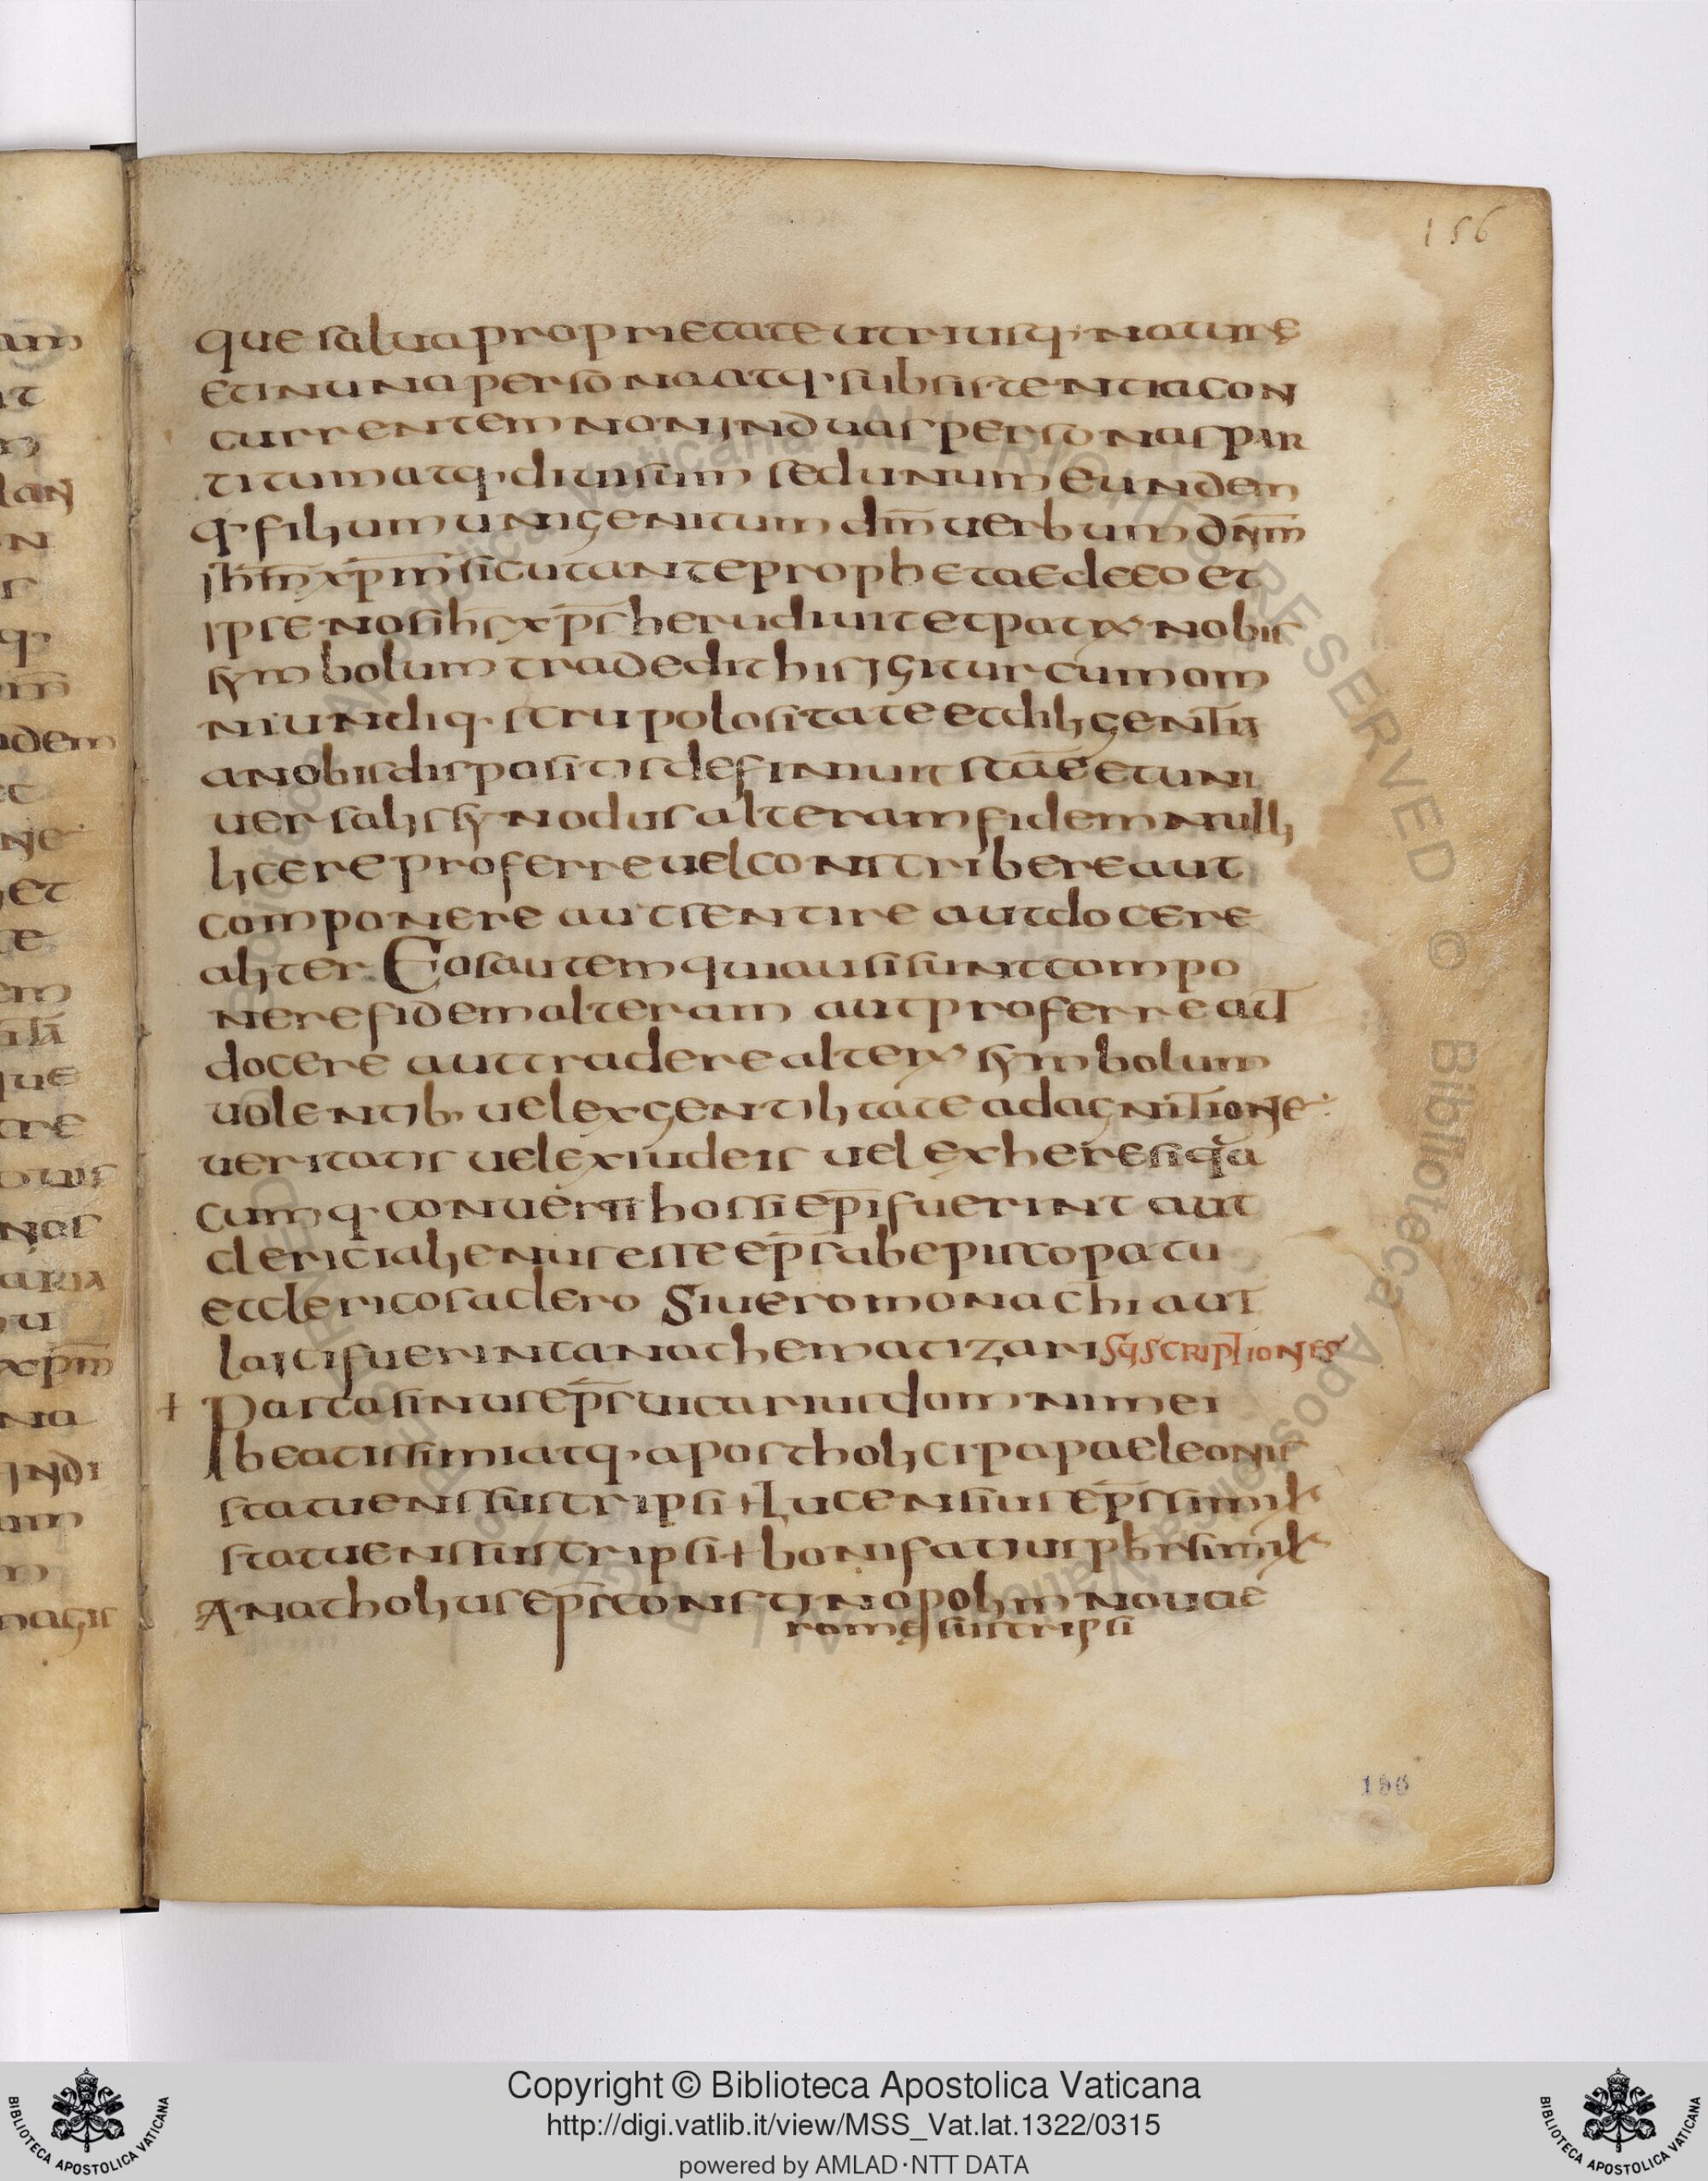 156
que salua proprietate utriusq· naturę
et in una persona atq· subsistentia con
currentem non in duas personas par
titum atq· diuisum sed unum eundem
q· filium unigenitum dm̄ uerbum dn̄m
ihm̄ xpm̄ sicut ante prophetae de eo et
ipse nos ihs̄ xps̄ herudiuit et patrum nobis
symbolum tradedit his igitur cum om
ni undiq· scrupolositate et diligentia
a nobis dispositis definiuit scāe et uni
uersalis synodus alteram fidem nulli
licere proferre uel conscribere aut
componere aut sentire aut docere
aliter. Eos autem qui ausi sunt compo
nere fidem alteram aut proferre aut
docere aut tradere alterum symbolum
uolentib· uel ex gentilitate ad agnitione·
ueritatis uel ex iudeis uel ex heresi qua
cumq· conuerti hos si epi̅ fuerint aut
clerici alienus esse eps̄ ab episcopatu
et clericos a clero Si uero monachi aut
laici fuerint anathematizari SUSCRIPTIONES
+ Pascasinus eps̄ uicarius domni mei
beatissimi atq· apostholici papae leonis
statuens suscripsi + Lucensius eps̄ simil
statuens suscripsi + bonifatius pbr simil
Anatholius eps̄ constinopolim nouae
romę suscripsi
156
Copyright © Biblioteca Apostolica Vaticana
http://digi.vatlib.it/view/MSS_Vat.lat.1322/0315
powered by AMLAD·NTT DATA
BIBLIOTECA APOSTOLICA VATICANA
BIBLIOTECA APOSTOLICA VATICANA